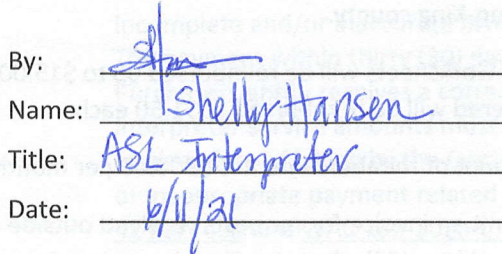 By:
Name: Shelly Hansen
Title: ASL Interpreter
Date: 6/11/21